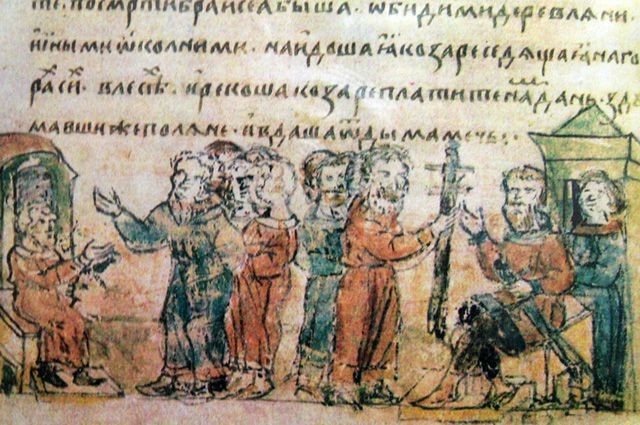 ти. посмр҃тибра҃исеѧбыша. ѡбидимидеревлѧни
инымиѡколними. наидошаꙗкозареседѧщаꙗнаго
раⷯсиⷯ. влесѣⷯ. ирекошакозареплатитенаⷨдань. здꙋ
мавшижеполѧне. ивдашаѿдымамечь:.